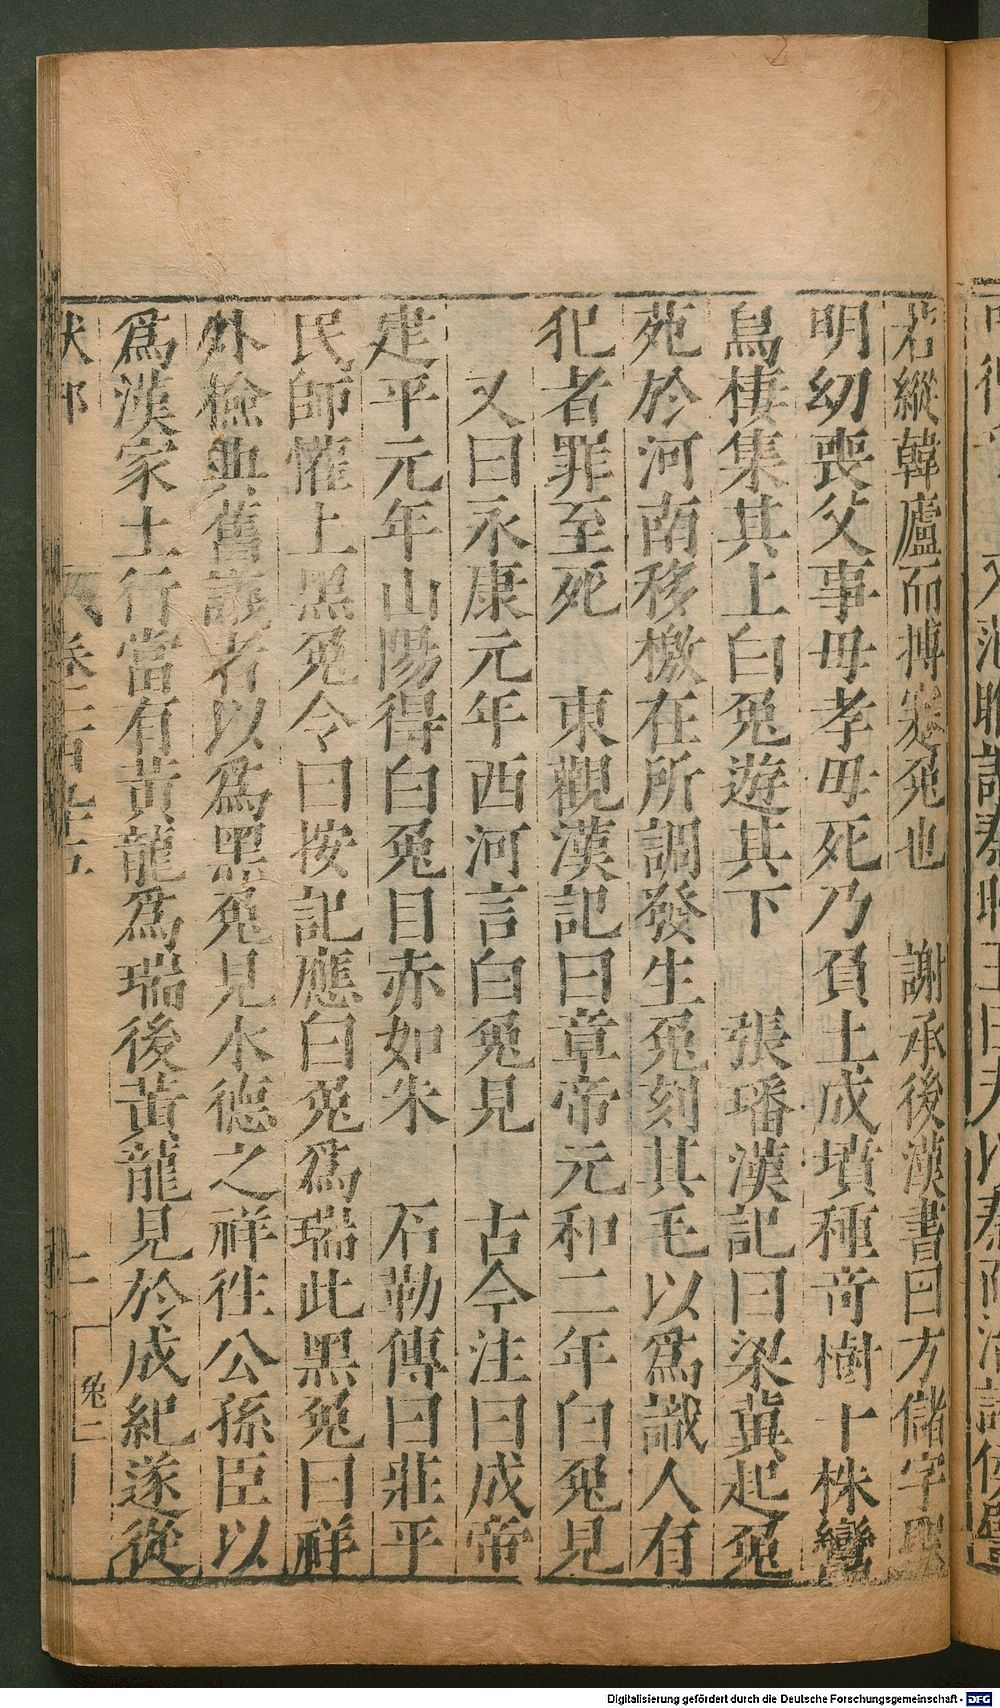 若縱韓廬而搏蹇兎也　謝承後漢書曰方儲字聖
明幼喪父事母孝母死乃負土成墳種竒樹十株鸞
鳥棲集其上白兎遊其下　張璠漢記曰梁冀起兎
苑於河南移檄在所調發生兎刻其毛以爲識人有
犯者罪至死　東觀漢記曰章帝元和二年白兎見
又曰永康元年西河言白兎見　古今注曰成帝
建平元年山陽得白兎目赤如朱　石勒傳曰茌平
民師懽上黑兎令曰按記應白兎爲瑞此黑兎曰祥
外檢典舊議者以爲黑兎見水德之祥往公孫臣以
爲漢家土行當有黃龍爲瑞後黃龍見於成紀遂從
獸部　卷二百九十五　上　兎二
Digitalisierung gefördert durch die Deutsche Forschungsgemeinschaft - DFG